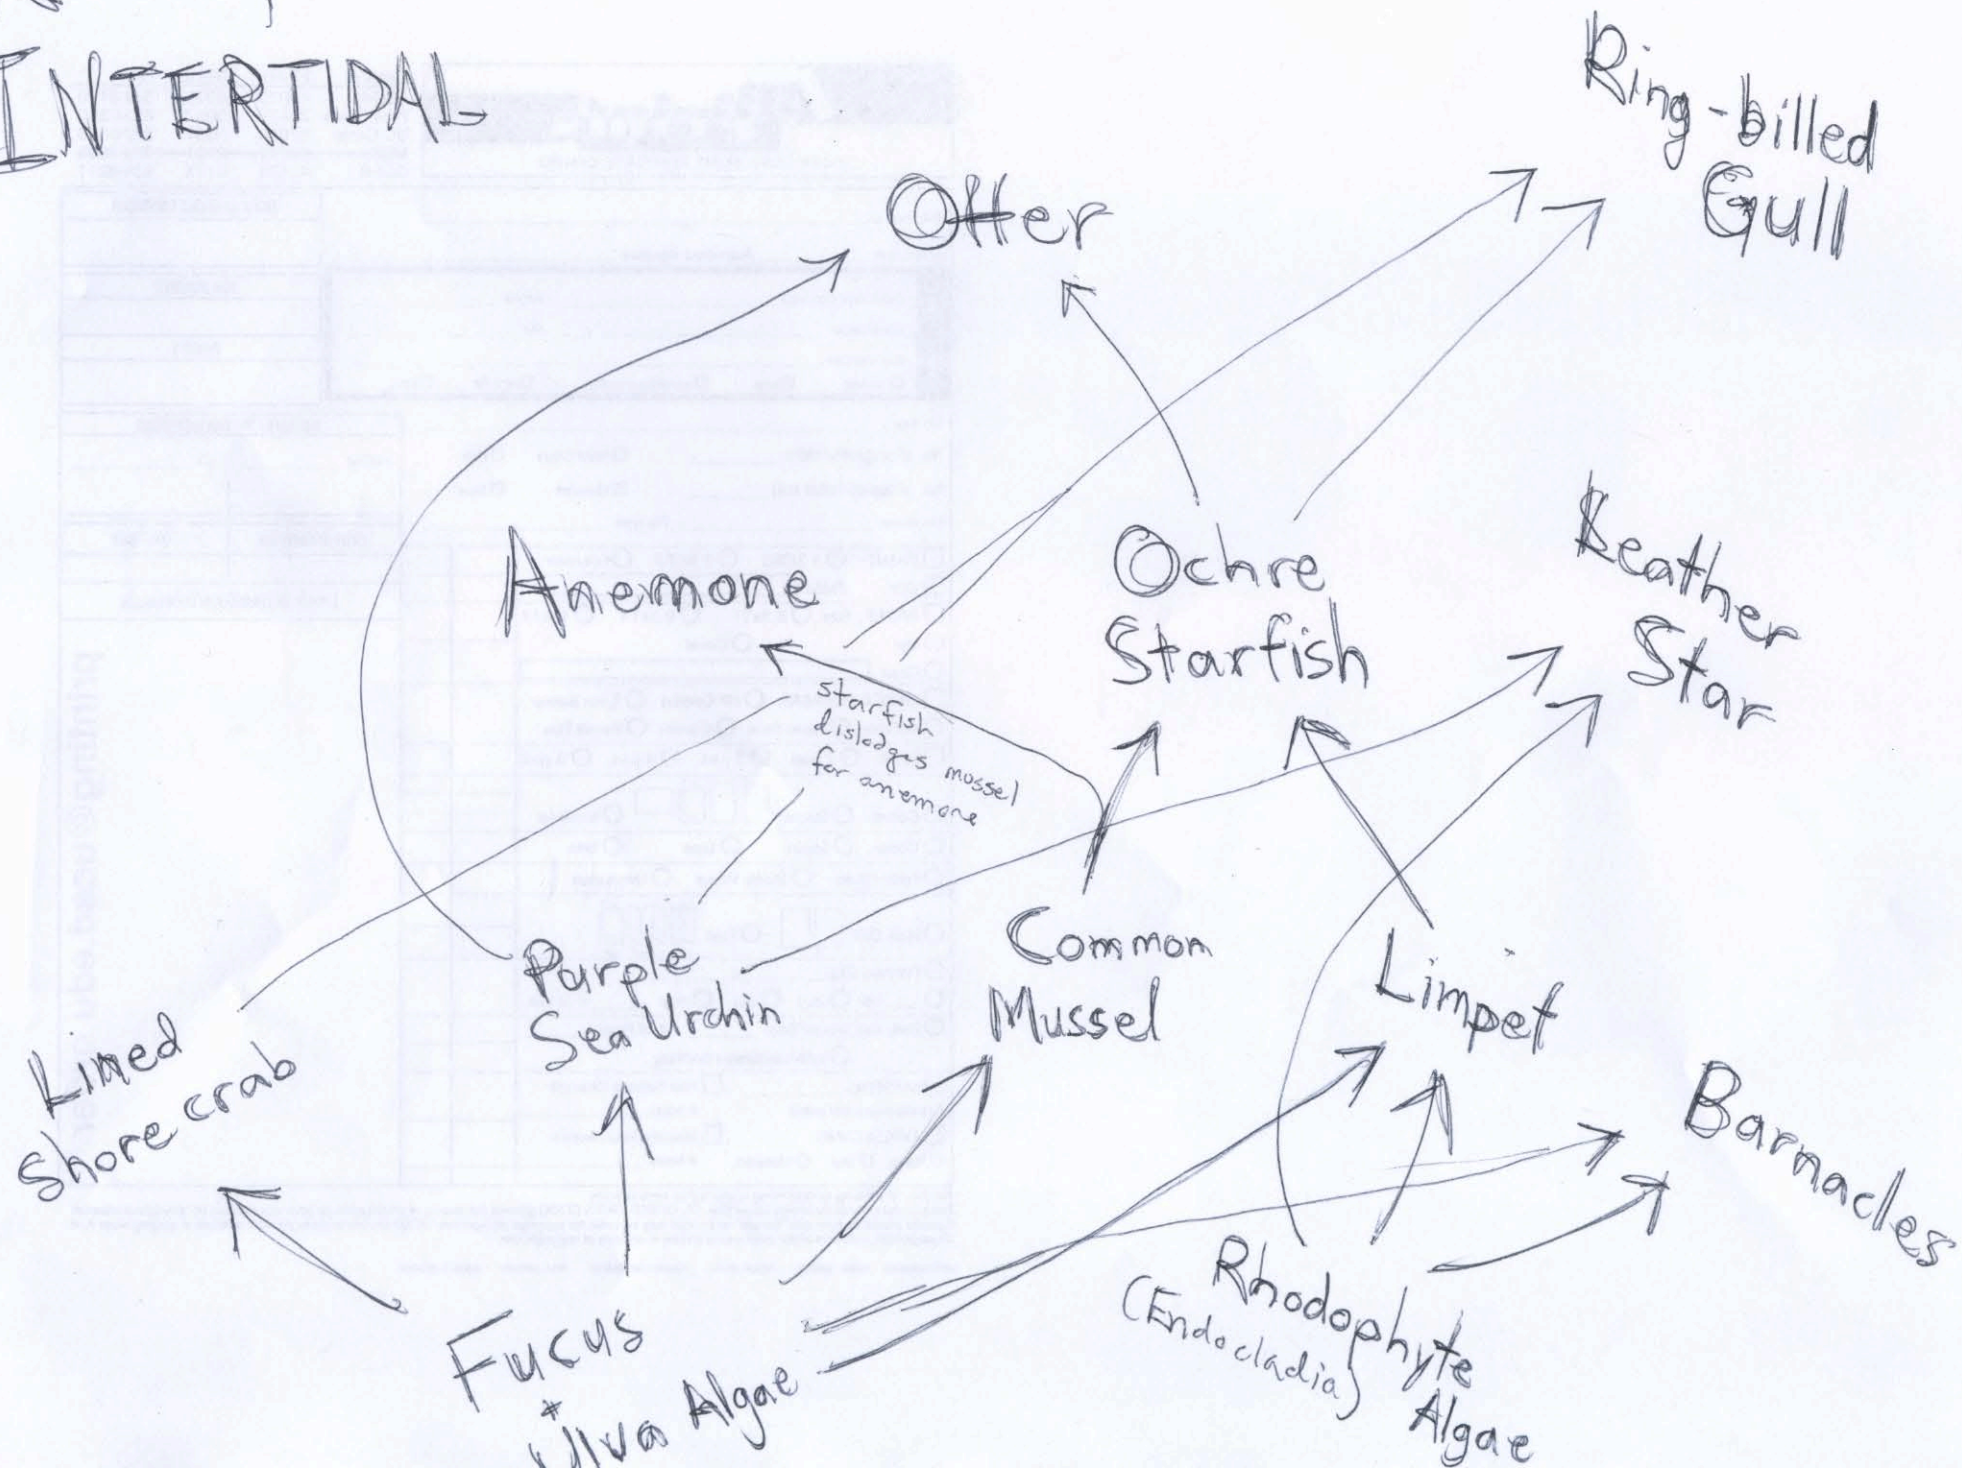 INTERTIDAL
Ring-billed
Gull
Otter
Anemone
Ochre
Starfish
Leather
Star
starfish
dislodges mussel
for anemone
Purple
Sea Urchin
Common
Mussel
Limpet
Lined
shore crab
Barnacles
Fucus
+
Ulva Algae
Rhodophyte
(Endocladia)
Algae